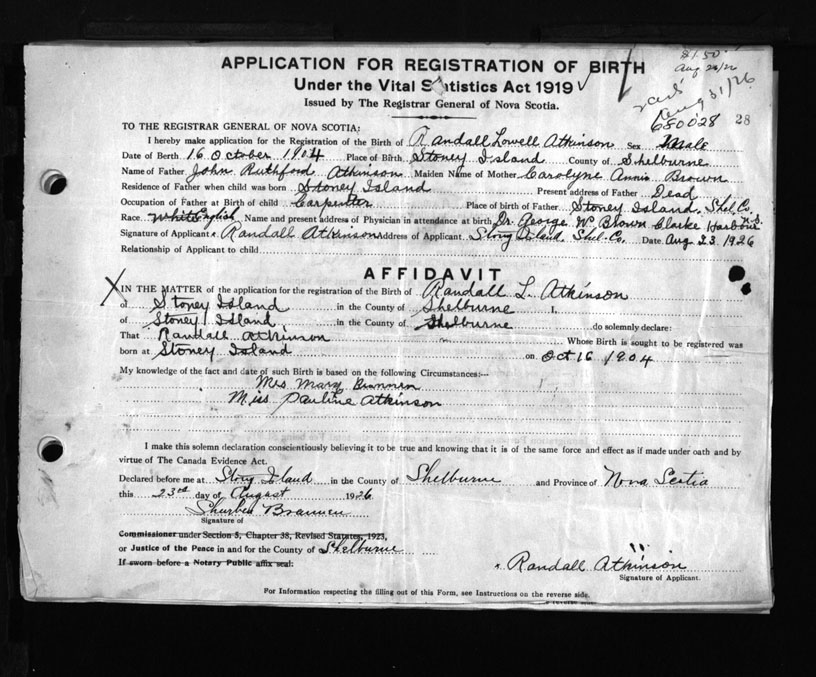 $1.50
Aug 23/26
APPLICATION FOR REGISTRATION OF BIRTH
Under the Vital Statistics Act 1919
Issued by The Registrar General of Nova Scotia.
Aug 31/26
680028 28
TO THE REGISTRAR GENERAL OF NOVA SCOTIA:
I hereby make application for the Registration of the Birth of Randall Lowell Atkinson Sex Male
Date of Birth 16 October 1904 Place of Birth Stoney Island County of Shelburne
Name of Father John Ruthford Atkinson Maiden Name of Mother Carolyne Annie Brown
Residence of Father when child was born Stoney Island Present address of Father Dead
Occupation of Father at Birth of child Carpentter Place of birth of Father Stoney Island Shel Co.
Race White English Name and present address of Physician in attendance at birth Dr. George W Brown Clarks Harbour N.S.
Signature of Applicant Randall Atkinson Address of Applicant Stony Island Shel. Co. Date Aug 23 1926
Relationship of Applicant to child
AFFIDAVIT
X IN THE MATTER of the application for the registration of the Birth of Randall L. Atkinson
of Stoney Island in the County of Shelburne I,
of Stoney Island in the County of Shelburne do solemnly declare:
That Randall Atkinson Whose Birth is sought to be registered was
born at Stoney Island on Oct 16 1904
My knowledge of the fact and date of such Birth is based on the following Circumstances:—
Mrs Mary Brannen
Miss Pauline Atkinson
I make this solemn declaration conscientiously believing it to be true and knowing that it is of the same force and effect as if made under oath and by
virtue of The Canada Evidence Act.
Declared before me at Stony Island in the County of Shelburne and Province of Nova Scotia
this 23rd day of August 1926
Brannen
Signature of
Commissioner under Section 5, Chapter 38, Revised Statutes, 1923,
or Justice of the Peace in and for the County of Shelburne
If sworn before a Notary Public affix seal.
Randall Atkinson
Signature of Applicant.
For Information respecting the filling out of this Form, see Instructions on the reverse side.